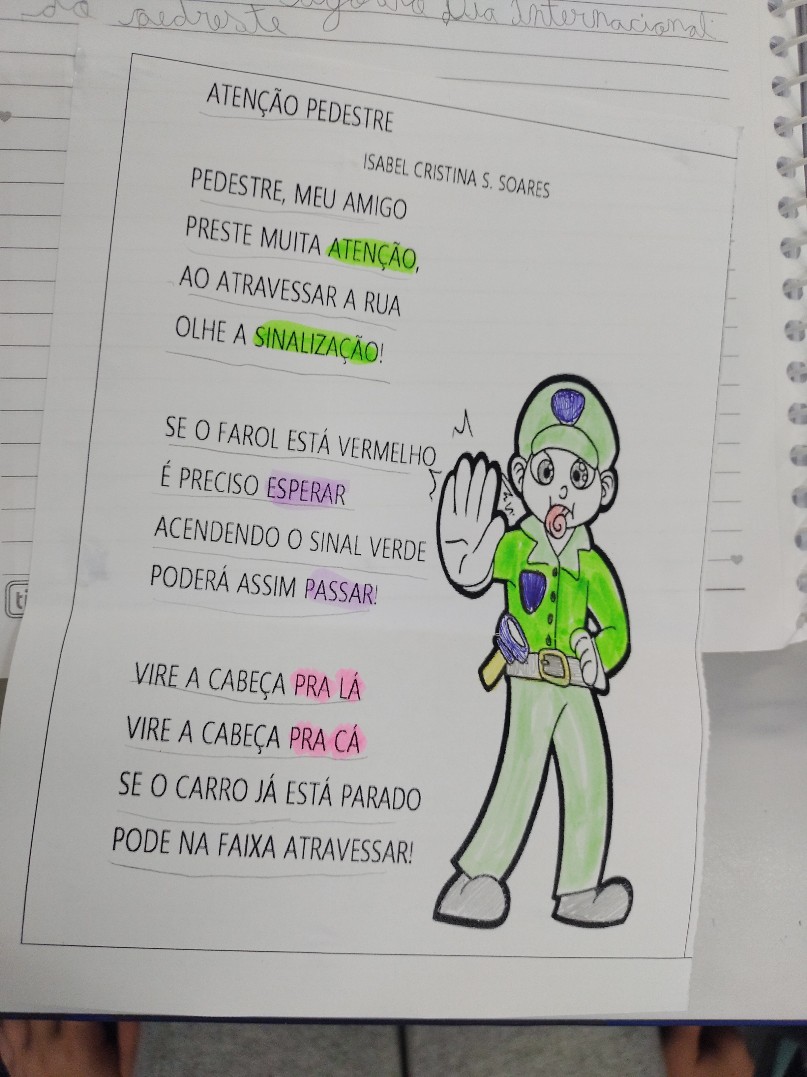 Dia Internacional
do pedreste
ATENÇÃO PEDESTRE
ISABEL CRISTINA S. SOARES
PEDESTRE, MEU AMIGO
PRESTE MUITA ATENÇÃO,
AO ATRAVESSAR A RUA
OLHE A SINALIZAÇÃO!
SE O FAROL ESTÁ VERMELHO
É PRECISO ESPERAR
ACENDENDO O SINAL VERDE
PODERÁ ASSIM PASSAR!
VIRE A CABEÇA PRA LÁ
VIRE A CABEÇA PRA CÁ
SE O CARRO JÁ ESTÁ PARADO
PODE NA FAIXA ATRAVESSAR!